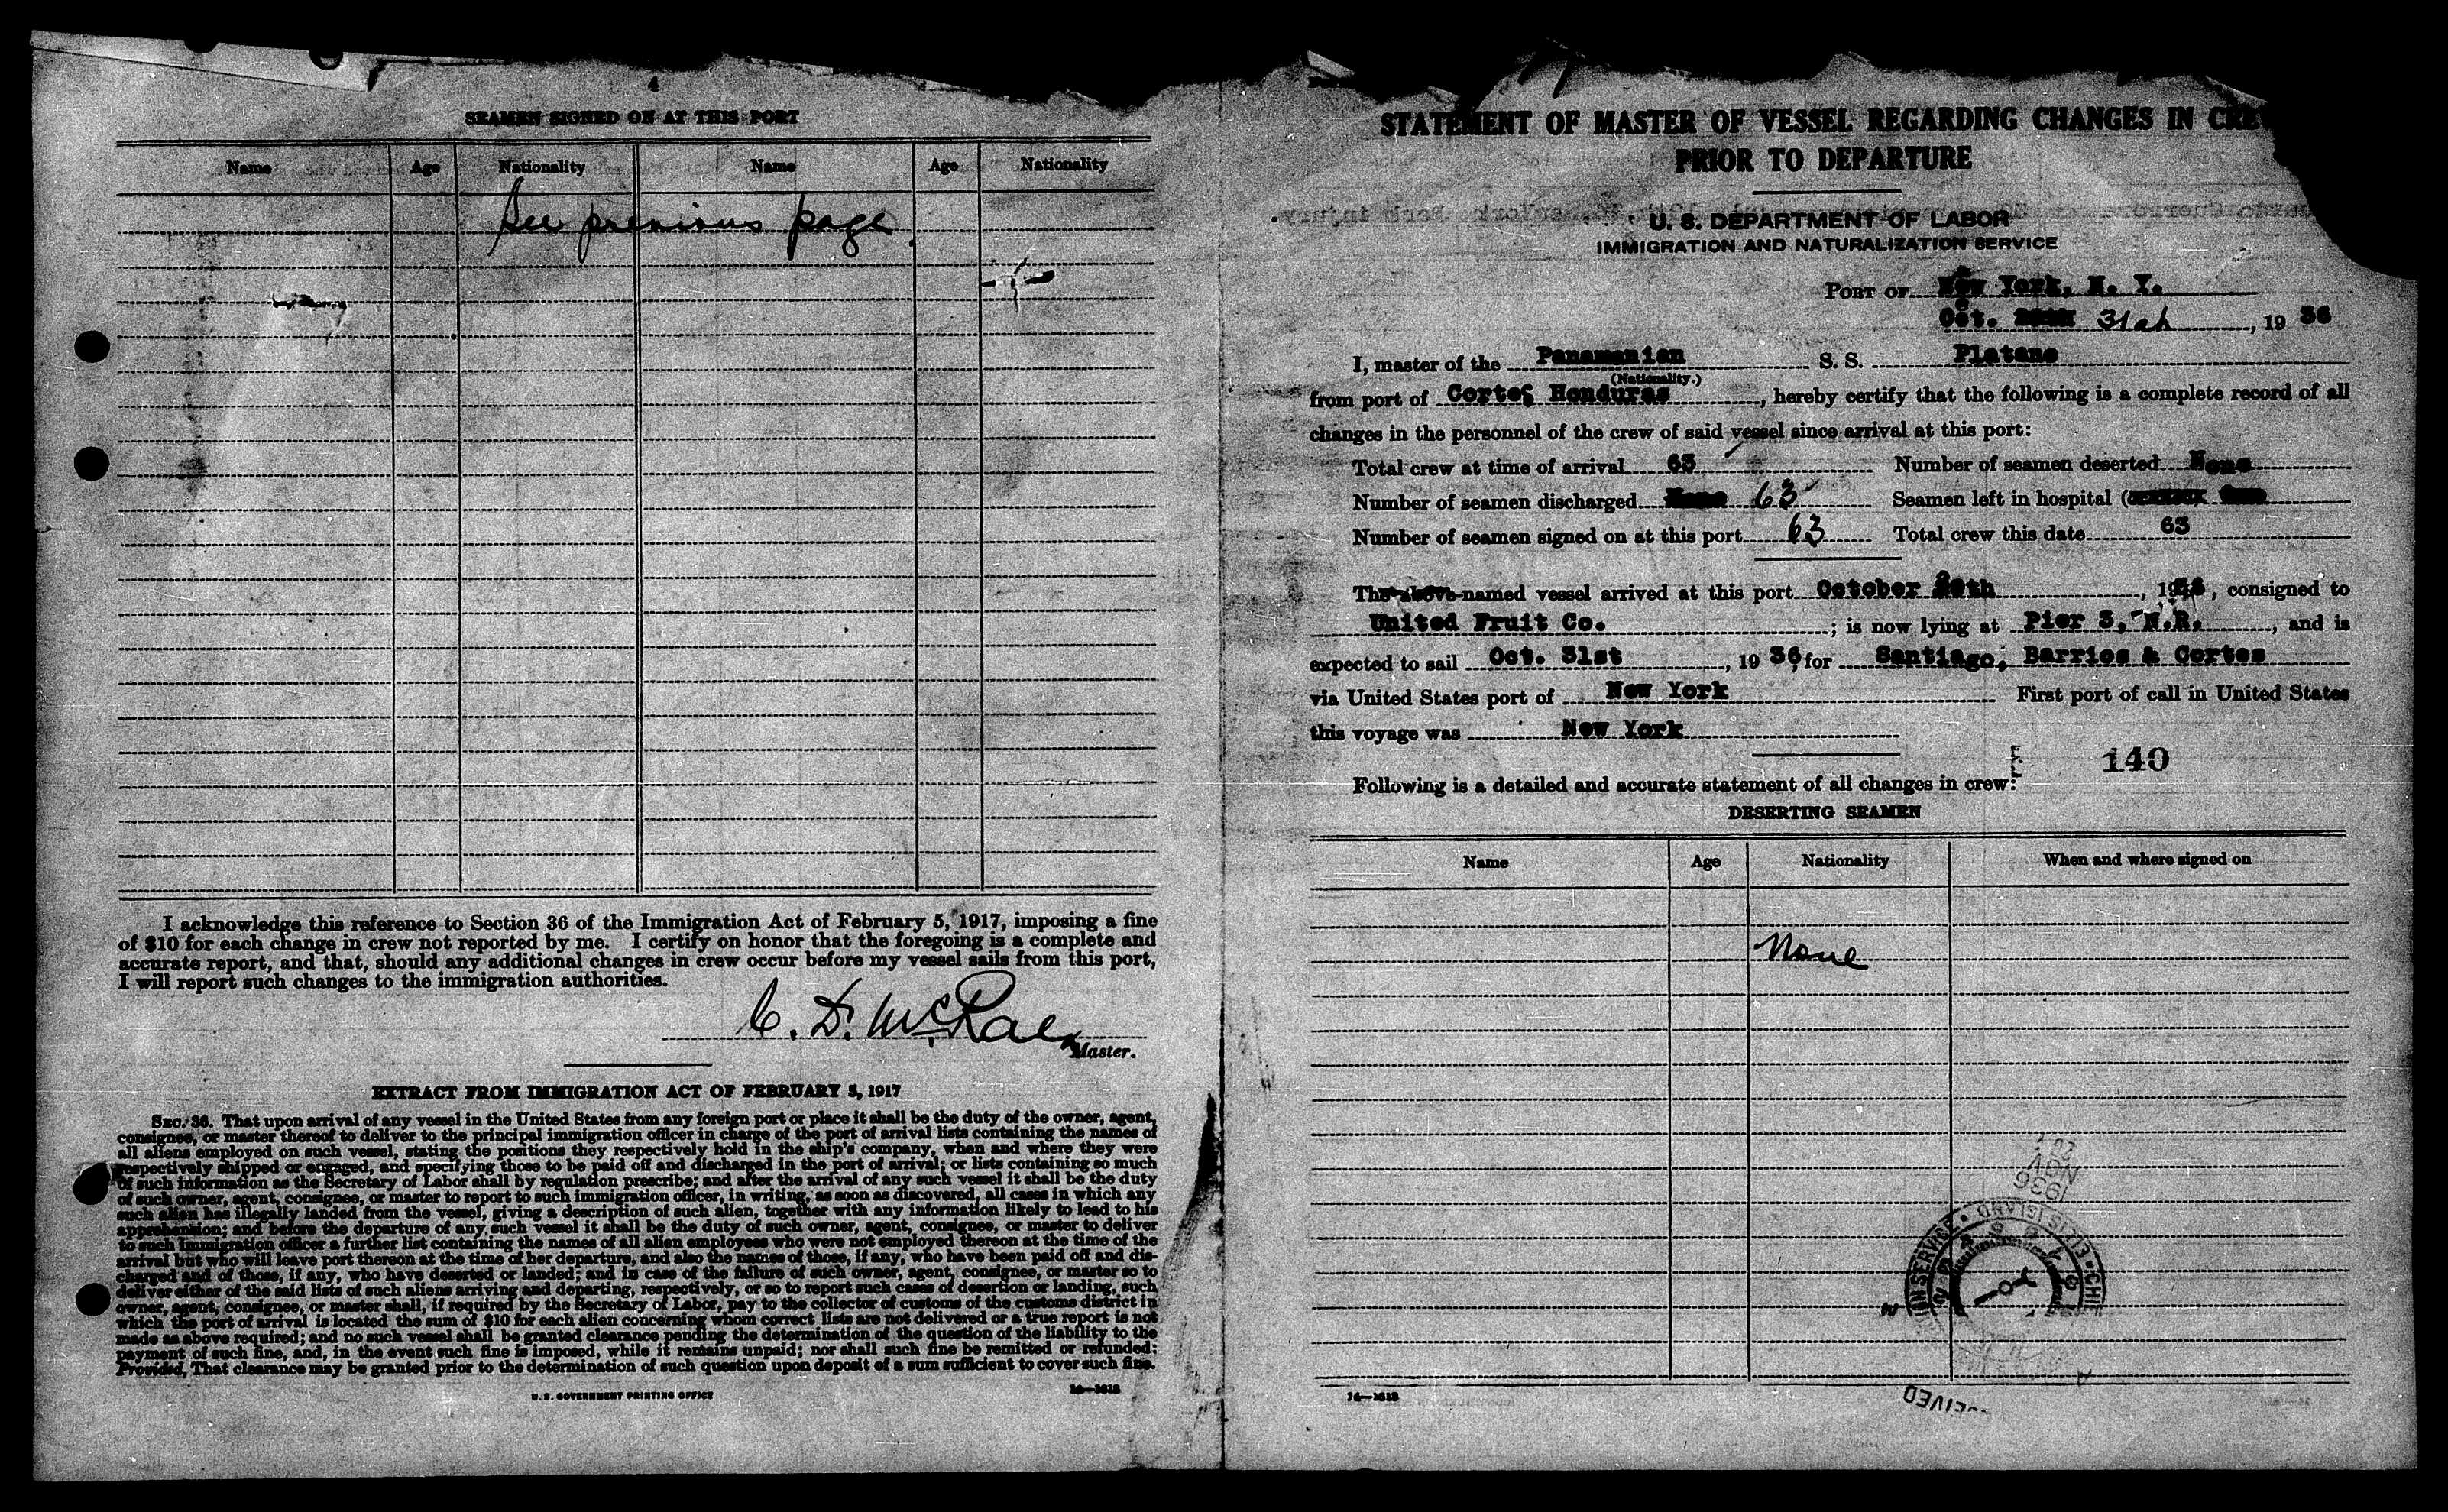 4
SEAMEN SIGNED ON AT THIS PORT
Name Age Nationality Name Age Nationality
See previous page
I acknowledge this reference to Section 36 of the Immigration Act of February 5, 1917, imposing a fine
of $10 for each change in crew not reported by me. I certify on honor that the foregoing is a complete and
accurate report, and that, should any additional changes in crew occur before my vessel sails from this port,
I will report such changes to the immigration authorities.
C. D. McRae
Master.
EXTRACT FROM IMMIGRATION ACT OF FEBRUARY 5, 1917
SEC. 36. That upon arrival of any vessel in the United States from any foreign port or place it shall be the duty of the owner, agent,
consignee, or master thereof to deliver to the principal immigration officer in charge of the port of arrival lists containing the names of
all aliens employed on such vessel, stating the positions they respectively hold in the ship's company, when and where they were
respectively shipped or engaged, and specifying those to be paid off and discharged in the port of arrival; or lists containing so much
of such information as the Secretary of Labor shall by regulation prescribe; and after the arrival of any such vessel it shall be the duty
of such owner, agent, consignee, or master to report to such immigration officer, in writing, as soon as discovered, all cases in which any
such alien has illegally landed from the vessel, giving a description of such alien, together with any information likely to lead to his
apprehension; and before the departure of any such vessel it shall be the duty of such owner, agent, consignee, or master to deliver
to such immigration officer a further list containing the names of all alien employees who were not employed thereon at the time of the
arrival but who will leave port thereon at the time of her departure, and also the names of those, if any, who have been paid off and dis-
charged and of those, if any, who have deserted or landed; and in case of the failure of such owner, agent, consignee, or master so to
deliver either of the said lists of such aliens arriving and departing, respectively, or so to report such cases of desertion or landing, such
owner, agent, consignee, or master shall, if required by the Secretary of Labor, pay to the collector of customs of the customs district in
which the port of arrival is located the sum of $10 for each alien concerning whom correct lists are not delivered or a true report is not
made as above required; and no such vessel shall be granted clearance pending the determination of the question of the liability to the
payment of such fine, and, in the event such fine is imposed, while it remains unpaid; nor shall such fine be remitted or refunded:
Provided, That clearance may be granted prior to the determination of such question upon deposit of a sum sufficient to cover such fine.
U. S. GOVERNMENT PRINTING OFFICE
STATEMENT OF MASTER OF VESSEL REGARDING CHANGES IN CREW
PRIOR TO DEPARTURE
U. S. DEPARTMENT OF LABOR
IMMIGRATION AND NATURALIZATION SERVICE
PORT OF New York, N. Y.
Oct. 31st, 19 36
I, master of the Panamanian S. S. Platano
(Nationality.)
from port of Cortes Honduras, hereby certify that the following is a complete record of all
changes in the personnel of the crew of said vessel since arrival at this port:
Total crew at time of arrival 63 Number of seamen deserted None
Number of seamen discharged None 63 Seamen left in hospital (
Number of seamen signed on at this port 63 Total crew this date 63
The above-named vessel arrived at this port October , 1936, consigned to
United Fruit Co.; is now lying at Pier 3, N.R., and is
expected to sail Oct. 31st, 19 36 for Santiago, Barrios & Cortes
via United States port of New York First port of call in United States
this voyage was New York
140
Following is a detailed and accurate statement of all changes in crew:
DESERTING SEAMEN
Name Age Nationality When and where signed on
None
1936
NOV
ELLIS ISLAND
14—1618